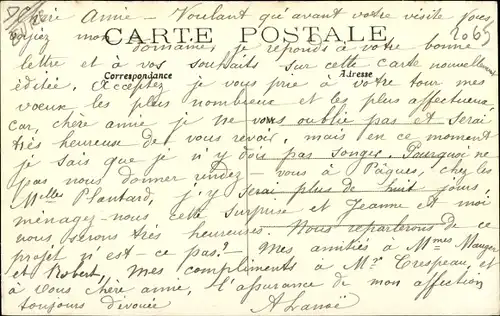 Chère Amie — Voulant qu'avant votre visite vous
voyiez mon domaine, je réponds à votre bonne
CARTE POSTALE
2065
lettre et à vos souhaits sur cette carte nouvellement
Correspondance
Adresse
éditée. Acceptez je vous prie à votre tour mes
vœux les plus nombreux et les plus affectueux
car, chère amie je ne vous oublie pas et serai
très heureuse de vous revoir, mais en ce moment
je sais que je n'y dois pas songer. Pourquoi ne
pas nous donner rendez-vous à Pâques, chez les
Melles Plantard, j'y serai plus de huit jours,
ménagez-nous cette surprise et Jeanne et moi
nous serons très heureuses. Nous reparlerons de ce
projet n'est-ce pas? — Mes amitiés à Mmes Mauger
et Robert, mes compliments à Mr Crespeau, et
à vous chère amie, l'assurance de mon affection
toujours dévouée